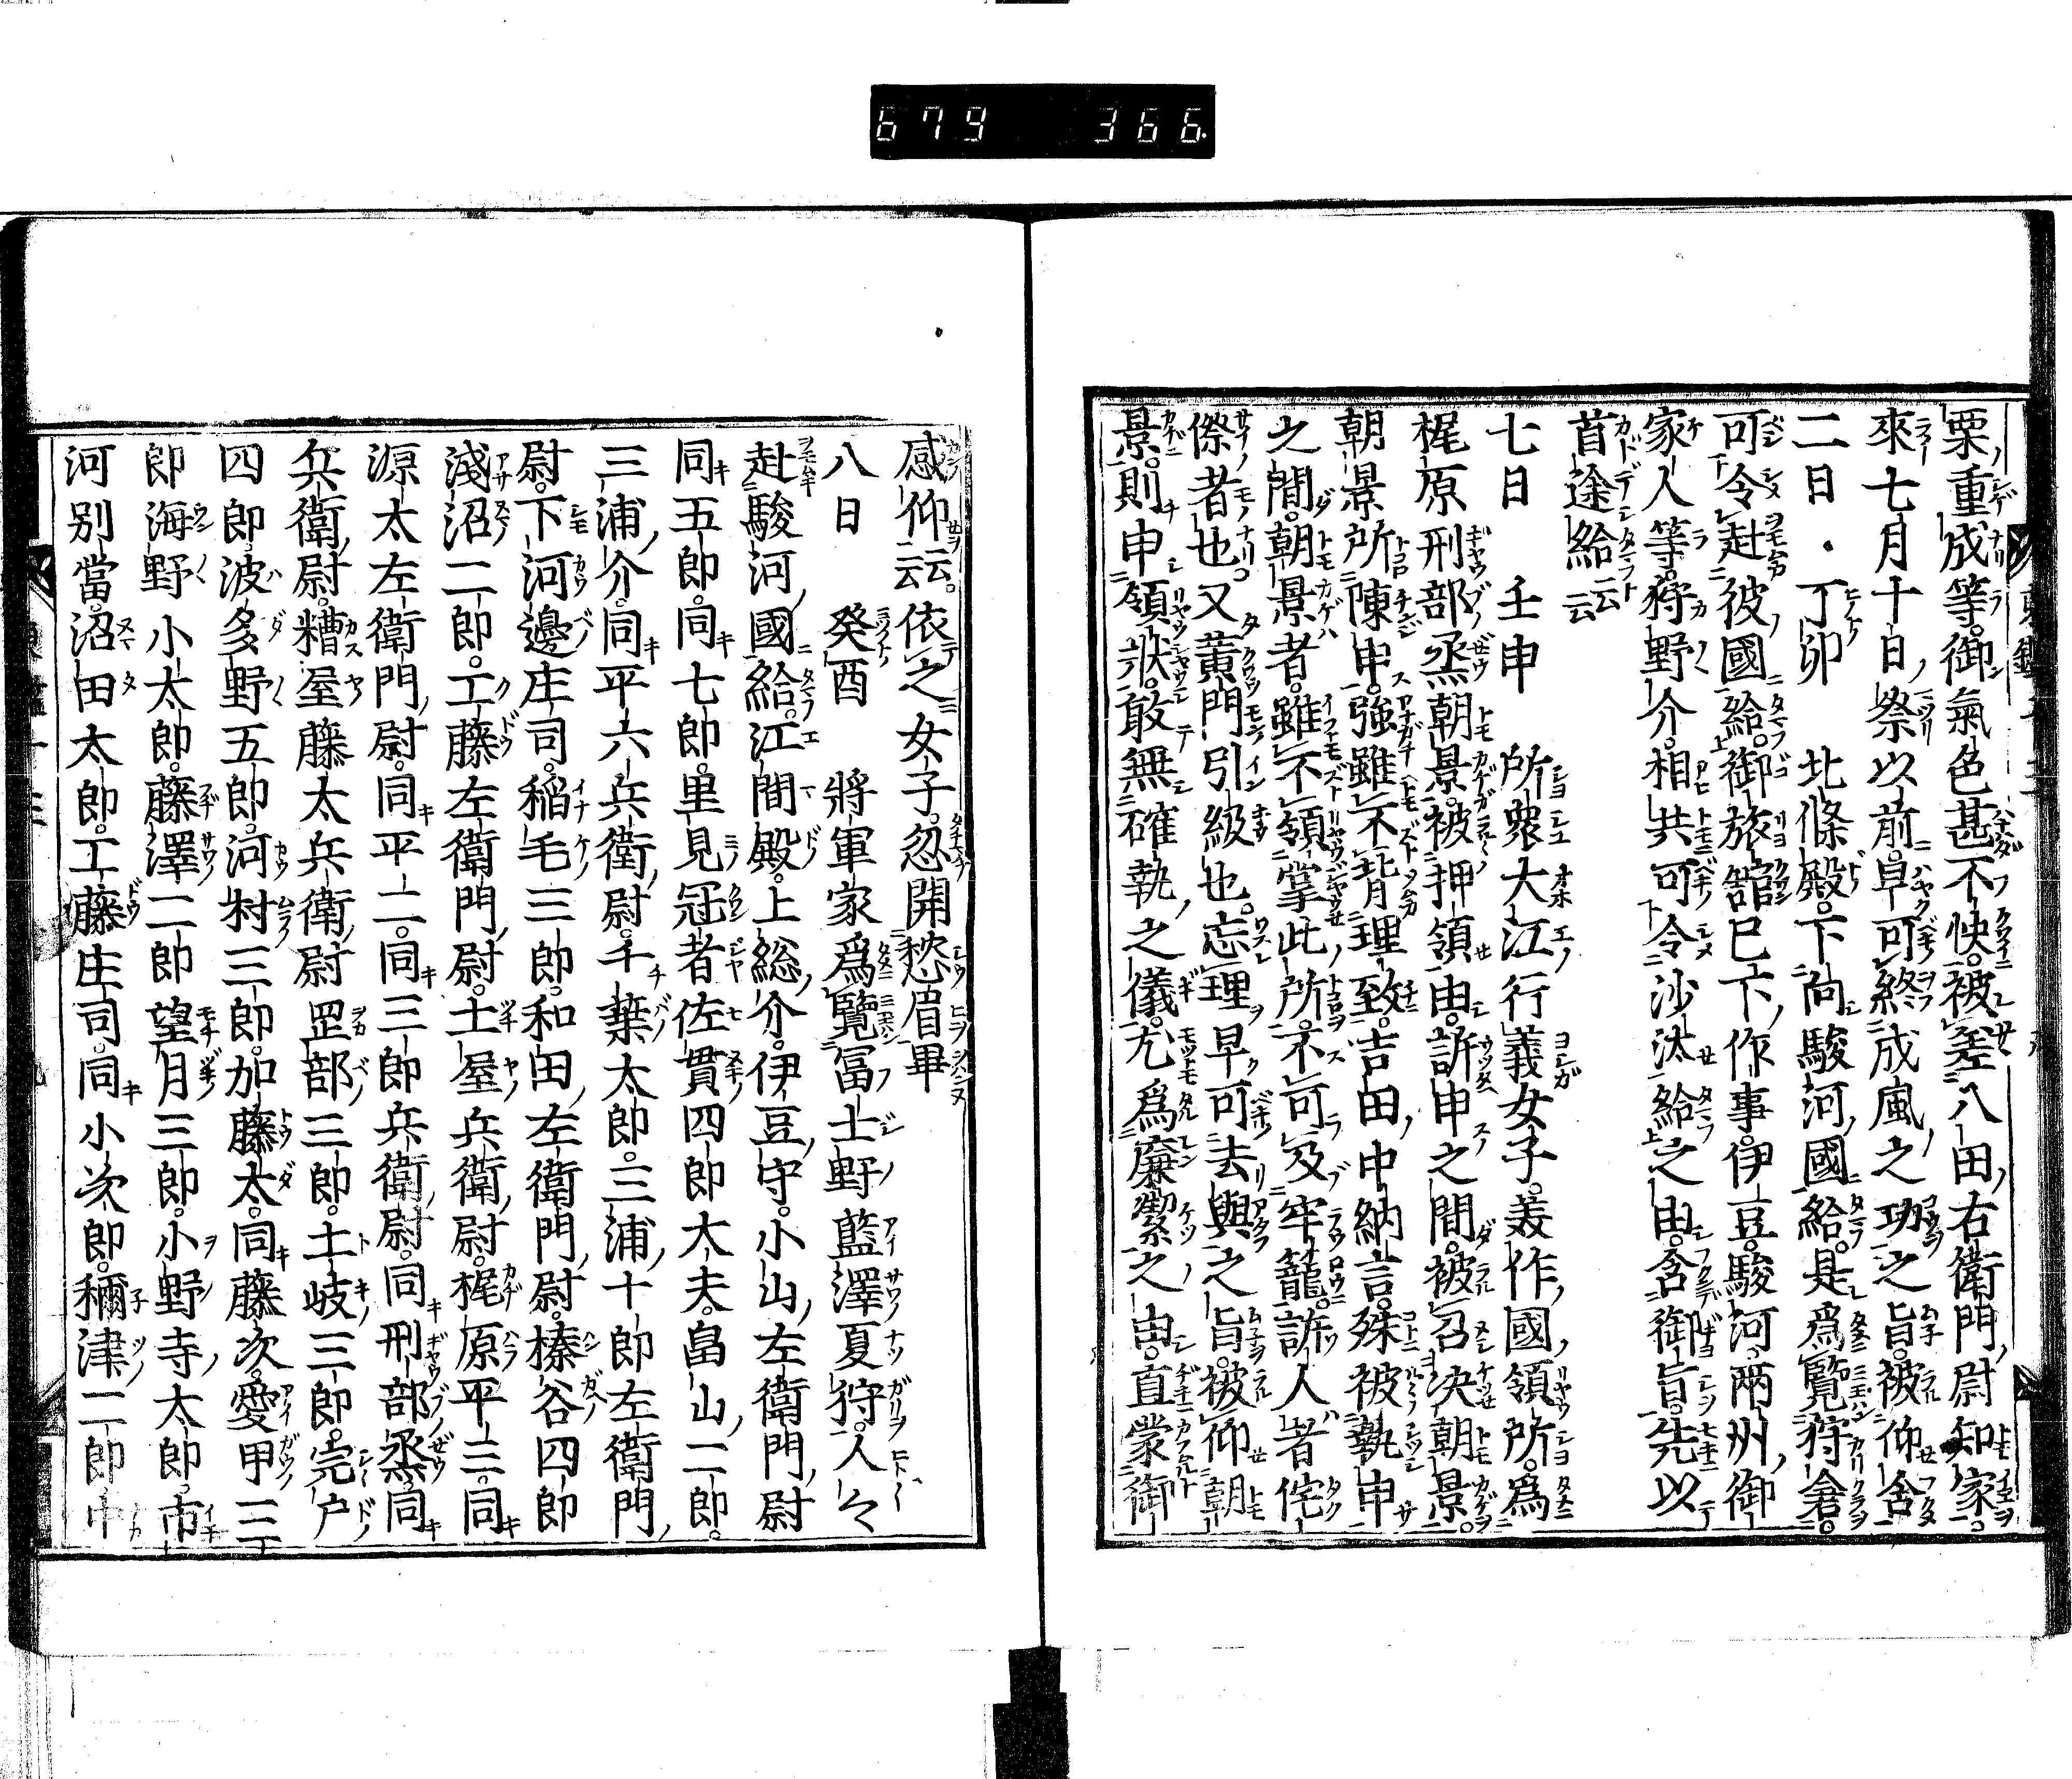 679 366
栗重成等。御氣色甚不快。被差八田右衛門尉知家。
來七月十日祭以前。早可終成風之功之旨。被仰含
二日・丁卯 北條殿。下向駿河國給。是爲覽狩倉。
可令赴彼國給。御旅舘已下作事。伊豆。駿河兩州御
家人等。狩野介。相共可令沙汰給之由。含御旨。先以
首途給云云
七日 壬申 所衆大江行義女子。美作國領所。爲
梶原刑部烝朝景。被押領由。訴申之間。被召决朝景。
朝景所陳申。強雖不背理致。吉田中納言。殊被執申
之間。朝景者。雖不領掌此所。不可及牢籠。訴人者侘
傺者也。又黄門引級也。忘理早可去與之旨。被仰朝
景。則申領狀。敢無確執之儀。尤爲廉潔之由。直蒙御
感仰云云。依之女子。忽開愁眉畢
八日 癸酉 將軍家爲覽冨士野藍澤夏狩。人々
赴駿河國給。江間殿。上総介。伊豆守。小山左衛門尉
同五郎。同七郎。里見冠者佐貫四郎大夫。畠山二郎。
三浦介。同平六兵衛尉。千葉太郎。三浦十郎左衛門
尉。下河邊庄司。稲毛三郎。和田左衛門尉。榛谷四郎
淺沼二郎。工藤左衛門尉。土屋兵衛尉。梶原平三。同
源太左衛門尉。同平二。同三郎兵衛尉。同刑部烝。同
兵衛尉。糟屋藤太兵衛尉 罡部三郎。土岐三郎。宍户
四郎。波多野五郎。河村三郎。加藤太。同藤次。愛甲三
郎 海野小太郎。藤澤二郎 望月三郎。小野寺太郎。市
河別當。沼田太郎。工藤庄司。同小次郎。禰津二郎。中